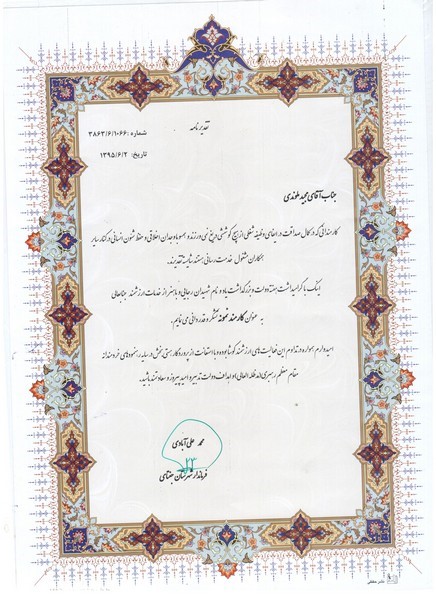 تقدیرنامه
شماره: ۳۸۶۳/۶/۱۰۶۶
تاریخ: ۱۳۹۵/۶/۲
جناب آقای مجید بلوندی
کارمندانی که در کمال صداقت در ایفای وظیفه شغلی از هیچ کوششی دریغ نمی ورزند و همواره وجدان اخلاقی و حفظ شئون انسانی در کنار سایر
همکاران مشغول خدمت رسانی هستند شایسته تقدیرند.
اینک با گرامیداشت هفته دولت و بزرگداشت یاد و نام شهیدان رجایی و باهنر از خدمات ارزشمند جنابعالی
به عنوان کارمند نمونه تشکر و قدردانی می نمایم.
امیدوارم همواره در تداوم این فعالیت های ارزشمند کوشا بوده و با استعانت از پروردگار هستی بخش در سایه رهنمودهای خردمندانه
مقام معظم رهبری مدظله العالی و اهداف دولت تدبیر و امید پیروز و سعادتمند باشید.
محمد علی آبادی
فرماندار شهرستان جغتای